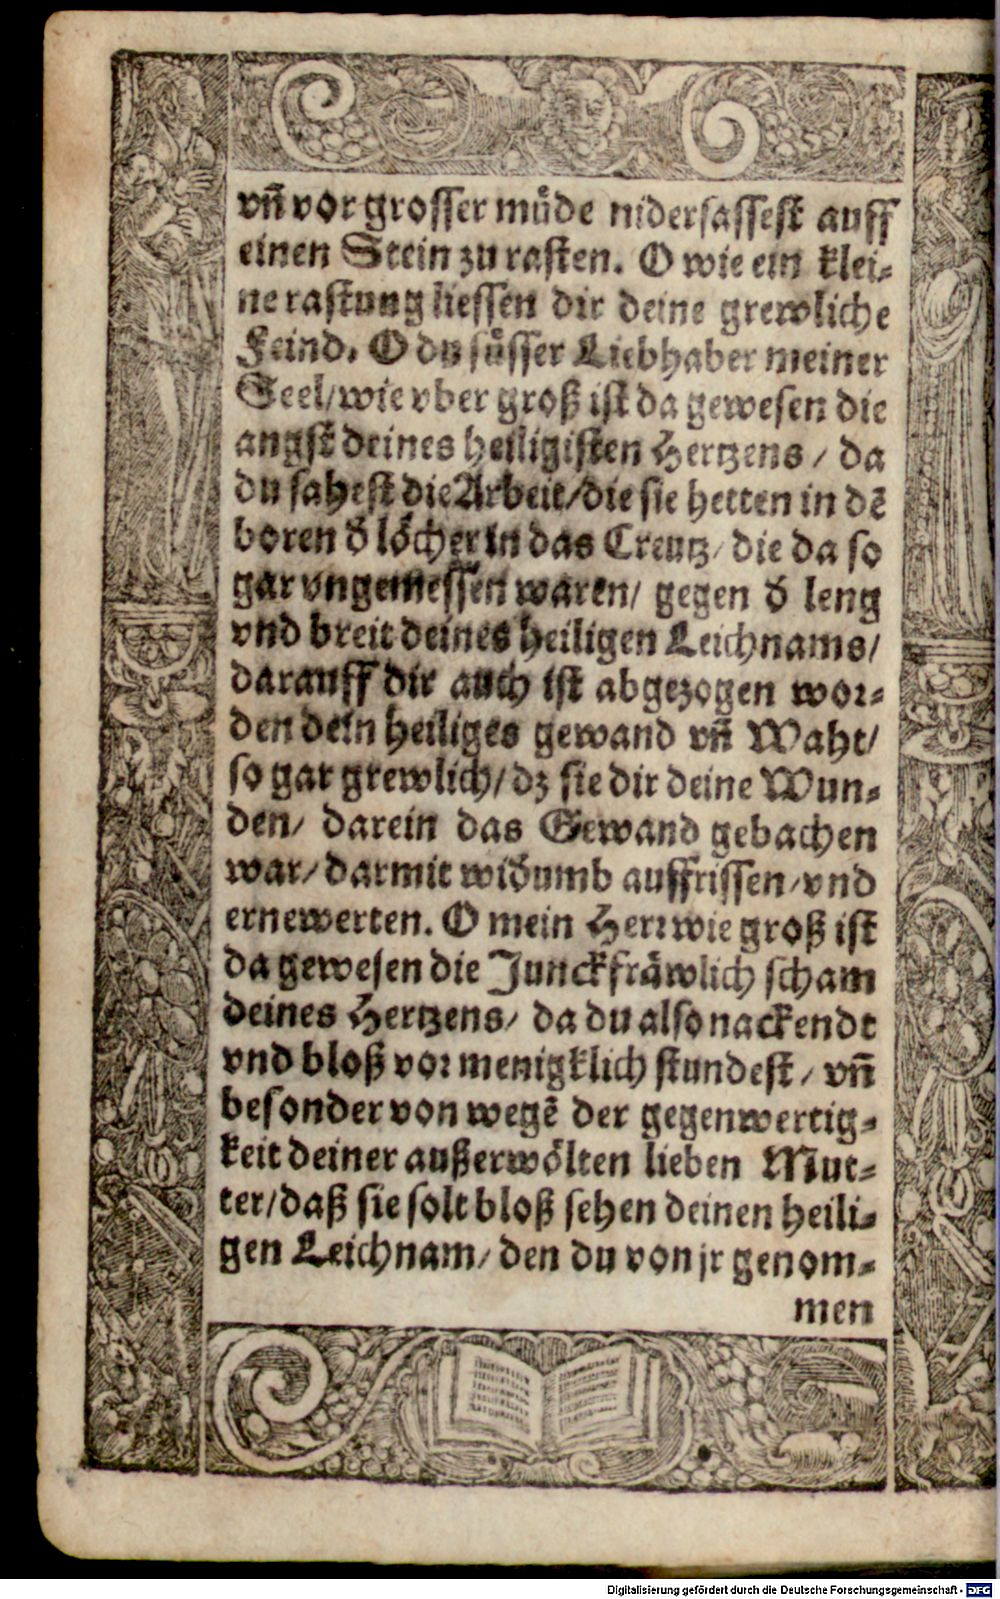 vñ vor grosser mu&#868;de nidersassest auff
einen Stein zu rasten. O wie ein klei⸗
ne rastung liessen dir deine grewliche
Feind. O du suͤsser Liebhaber meiner
Seel/wie vber groß ist da gewesen die
angst deines heiligisten Hertzens / da
du sahest die Arbeit/die sie hetten in dē
boren d̕ loͤcher in das Creutz/ die da so
gar vngemessen waren/ gegen d̕ leng
vnd breit deines heiligen Leichnams/
darauff dir auch ist abgezogen wor⸗
den dein heiliges gewand vñ Waht/
so gar grewlich/ dz sie dir deine Wun⸗
den/ darein das Gewand gebachen
war/ darmit wid̕umb auffrissen/ vnd
ernewerten. O mein Herr wie groß ist
da gewesen die Junckfraͤwlich scham
deines Hertzens/ da du also nackendt
vnd bloß vor menigklich stundest / vñ
besonder von wegē der gegenwertig⸗
keit deiner außerwoͤlten lieben Mut⸗
ter/daß sie solt bloß sehen deinen heili⸗
gen Leichnam/ den du von jr genom⸗
men
Digitalisierung gefördert durch die Deutsche Forschungsgemeinschaft - DFG